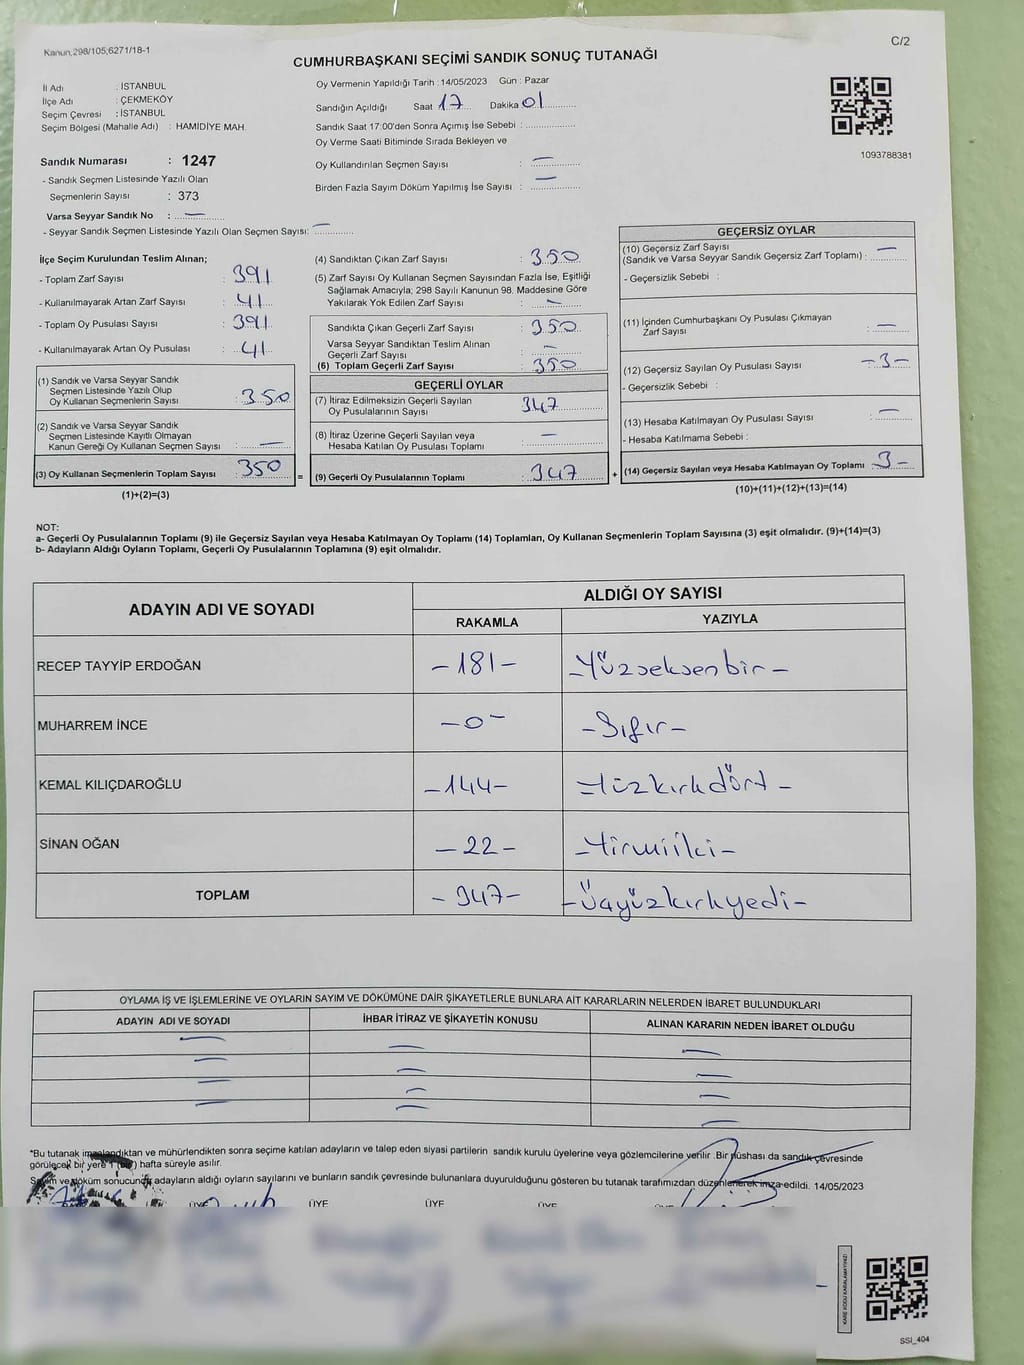 Kanun,298/105,6271/18-1
C/2
CUMHURBAŞKANI SEÇİMİ SANDIK SONUÇ TUTANAĞI
İl Adı : İSTANBUL
İlçe Adı : ÇEKMEKÖY
Seçim Çevresi : İSTANBUL
Seçim Bölgesi (Mahalle Adı) : HAMİDİYE MAH.
Sandık Numarası : 1247
- Sandık Seçmen Listesinde Yazılı Olan
Seçmenlerin Sayısı : 373
Varsa Seyyar Sandık No : —
- Seyyar Sandık Seçmen Listesinde Yazılı Olan Seçmen Sayısı: —
Oy Vermenin Yapıldığı Tarih : 14/05/2023 Gün : Pazar
Sandığın Açıldığı Saat 17 Dakika 01
Sandık Saat 17:00'den Sonra Açımış İse Sebebi :
Oy Verme Saati Bitiminde Sırada Bekleyen ve
Oy Kullandırılan Seçmen Sayısı : —
Birden Fazla Sayım Döküm Yapılmış İse Sayısı : —
1093788381
İlçe Seçim Kurulundan Teslim Alınan;
- Toplam Zarf Sayısı : 391
- Kullanılmayarak Artan Zarf Sayısı : 41
- Toplam Oy Pusulası Sayısı : 391
- Kullanılmayarak Artan Oy Pusulası : 41
(1) Sandık ve Varsa Seyyar Sandık
Seçmen Listesinde Yazılı Olup
Oy Kullanan Seçmenlerin Sayısı : 350
(2) Sandık ve Varsa Seyyar Sandık
Seçmen Listesinde Kayıtlı Olmayan
Kanun Gereği Oy Kullanan Seçmen Sayısı : —
(3) Oy Kullanan Seçmenlerin Toplam Sayısı : 350
(1)+(2)=(3)
(4) Sandıktan Çıkan Zarf Sayısı : 350
(5) Zarf Sayısı Oy Kullanan Seçmen Sayısından Fazla İse, Eşitliği
Sağlamak Amacıyla; 298 Sayılı Kanunun 98. Maddesine Göre
Yakılarak Yok Edilen Zarf Sayısı : —
Sandıkta Çıkan Geçerli Zarf Sayısı : 350
Varsa Seyyar Sandıktan Teslim Alınan
Geçerli Zarf Sayısı : —
(6) Toplam Geçerli Zarf Sayısı : 350
GEÇERLİ OYLAR
(7) İtiraz Edilmeksizin Geçerli Sayılan
Oy Pusulalarının Sayısı : 347
(8) İtiraz Üzerine Geçerli Sayılan veya
Hesaba Katılan Oy Pusulası Toplamı : —
= (9) Geçerli Oy Pusulalarının Toplamı : 347
GEÇERSİZ OYLAR
(10) Geçersiz Zarf Sayısı
(Sandık ve Varsa Seyyar Sandık Geçersiz Zarf Toplamı) : —
- Geçersizlik Sebebi :
(11) İçinden Cumhurbaşkanı Oy Pusulası Çıkmayan
Zarf Sayısı : —
(12) Geçersiz Sayılan Oy Pusulası Sayısı : -3-
- Geçersizlik Sebebi :
(13) Hesaba Katılmayan Oy Pusulası Sayısı : —
- Hesaba Katılmama Sebebi :
+ (14) Geçersiz Sayılan veya Hesaba Katılmayan Oy Toplamı : 3-
(10)+(11)+(12)+(13)=(14)
NOT:
a- Geçerli Oy Pusulalarının Toplamı (9) ile Geçersiz Sayılan veya Hesaba Katılmayan Oy Toplamı (14) Toplamları, Oy Kullanan Seçmenlerin Toplam Sayısına (3) eşit olmalıdır. (9)+(14)=(3)
b- Adayların Aldığı Oyların Toplamı, Geçerli Oy Pusulalarının Toplamına (9) eşit olmalıdır.
ADAYIN ADI VE SOYADI
ALDIĞI OY SAYISI
RAKAMLA YAZIYLA
RECEP TAYYİP ERDOĞAN -181- -Yüzseksenbir-
MUHARREM İNCE -0- -Sıfır-
KEMAL KILIÇDAROĞLU -144- -Yüzkırkdört-
SİNAN OĞAN -22- -Yirmiiki-
TOPLAM -347- -Üçyüzkırkyedi-
OYLAMA İŞ VE İŞLEMLERİNE VE OYLARIN SAYIM VE DÖKÜMÜNE DAİR ŞİKAYETLERLE BUNLARA AİT KARARLARIN NELERDEN İBARET BULUNDUKLARI
ADAYIN ADI VE SOYADI İHBAR İTİRAZ VE ŞİKAYETİN KONUSU ALINAN KARARIN NEDEN İBARET OLDUĞU
*Bu tutanak imzalandıktan ve mühürlendikten sonra seçime katılan adayların ve talep eden siyasi partilerin sandık kurulu üyelerine veya gözlemcilerine verilir .Bir nüshası da sandık çevresinde
görülecek bir yere 1 (bir) hafta süreyle asılır.
Sayım ve döküm sonucunda adayların aldığı oyların sayılarını ve bunların sandık çevresinde bulunanlara duyurulduğunu gösteren bu tutanak tarafımızdan düzenlenerek imza edildi. 14/05/2023
ÜYE ÜYE ÜYE ÜYE
KARE KODU KARALAMAYINIZ!
SSI_404